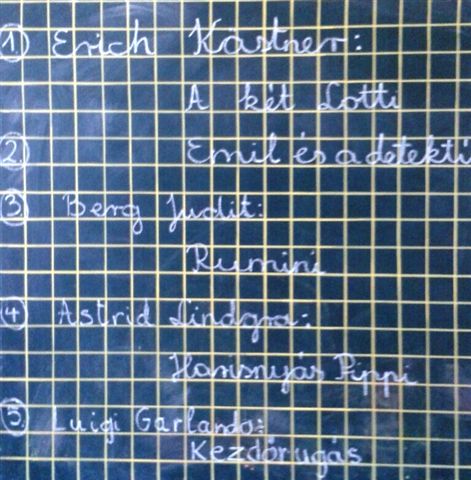 1) Erich Kästner:
A két Lotti
2. Emil és a detekti
3. Berg Judit:
Rumini
4 Astrid Lindgra:
Harisnyás Pippi
5. Luigi Garlando:
Kezdőrúgás